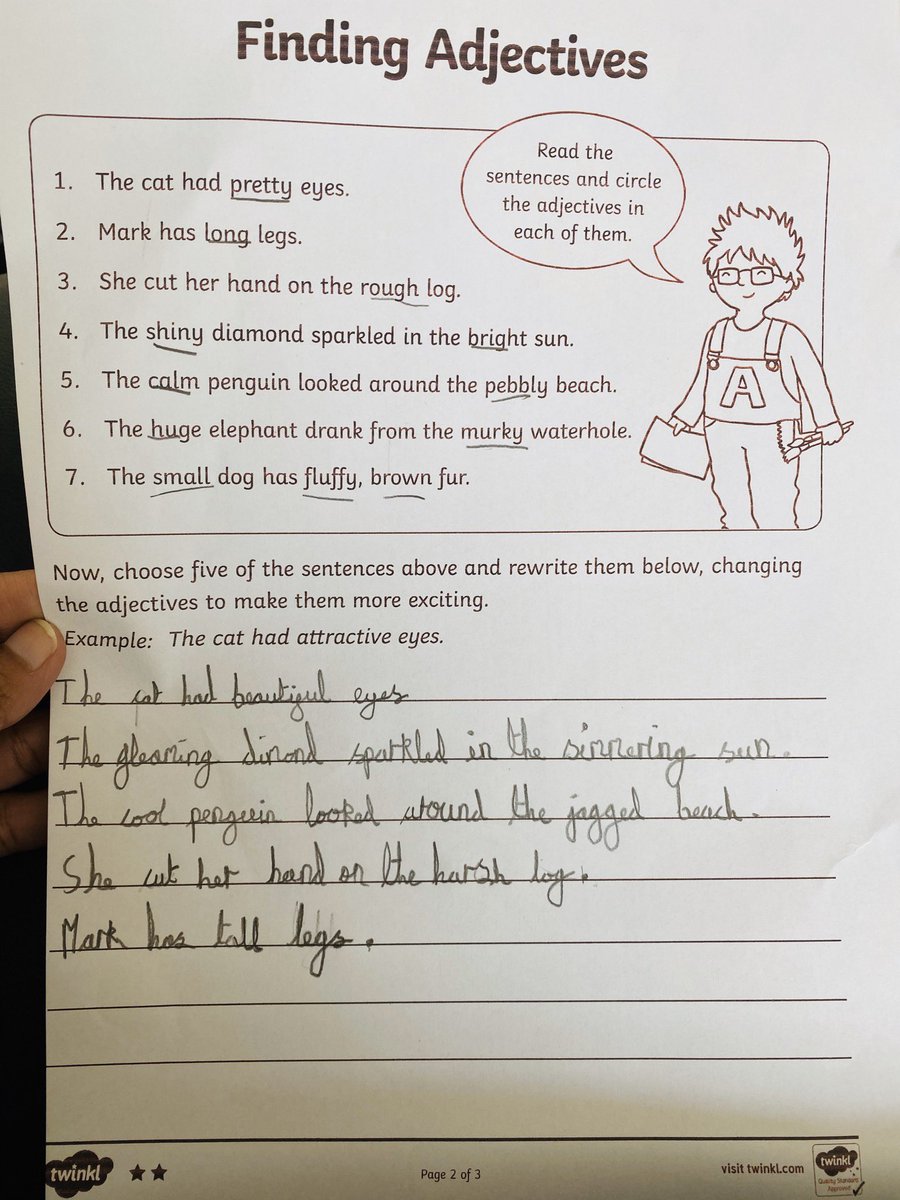 Finding Adjectives
Read the
sentences and circle
the adjectives in
each of them.
1. The cat had pretty eyes.
2. Mark has long legs.
3. She cut her hand on the rough log.
4. The shiny diamond sparkled in the bright sun.
5. The calm penguin looked around the pebbly beach.
6. The huge elephant drank from the murky waterhole.
7. The small dog has fluffy, brown fur.
A
Now, choose five of the sentences above and rewrite them below, changing
the adjectives to make them more exciting.
Example: The cat had attractive eyes.
The cat had beautiful eyes
The gleaming dimond sparkled in the simmering sun.
The cool penguin looked around the jagged beach.
She cut her hand on the harsh log.
Mark has tall legs.
twinkl
Page 2 of 3
visit twinkl.com
twinkl
Quality Standard
Approved